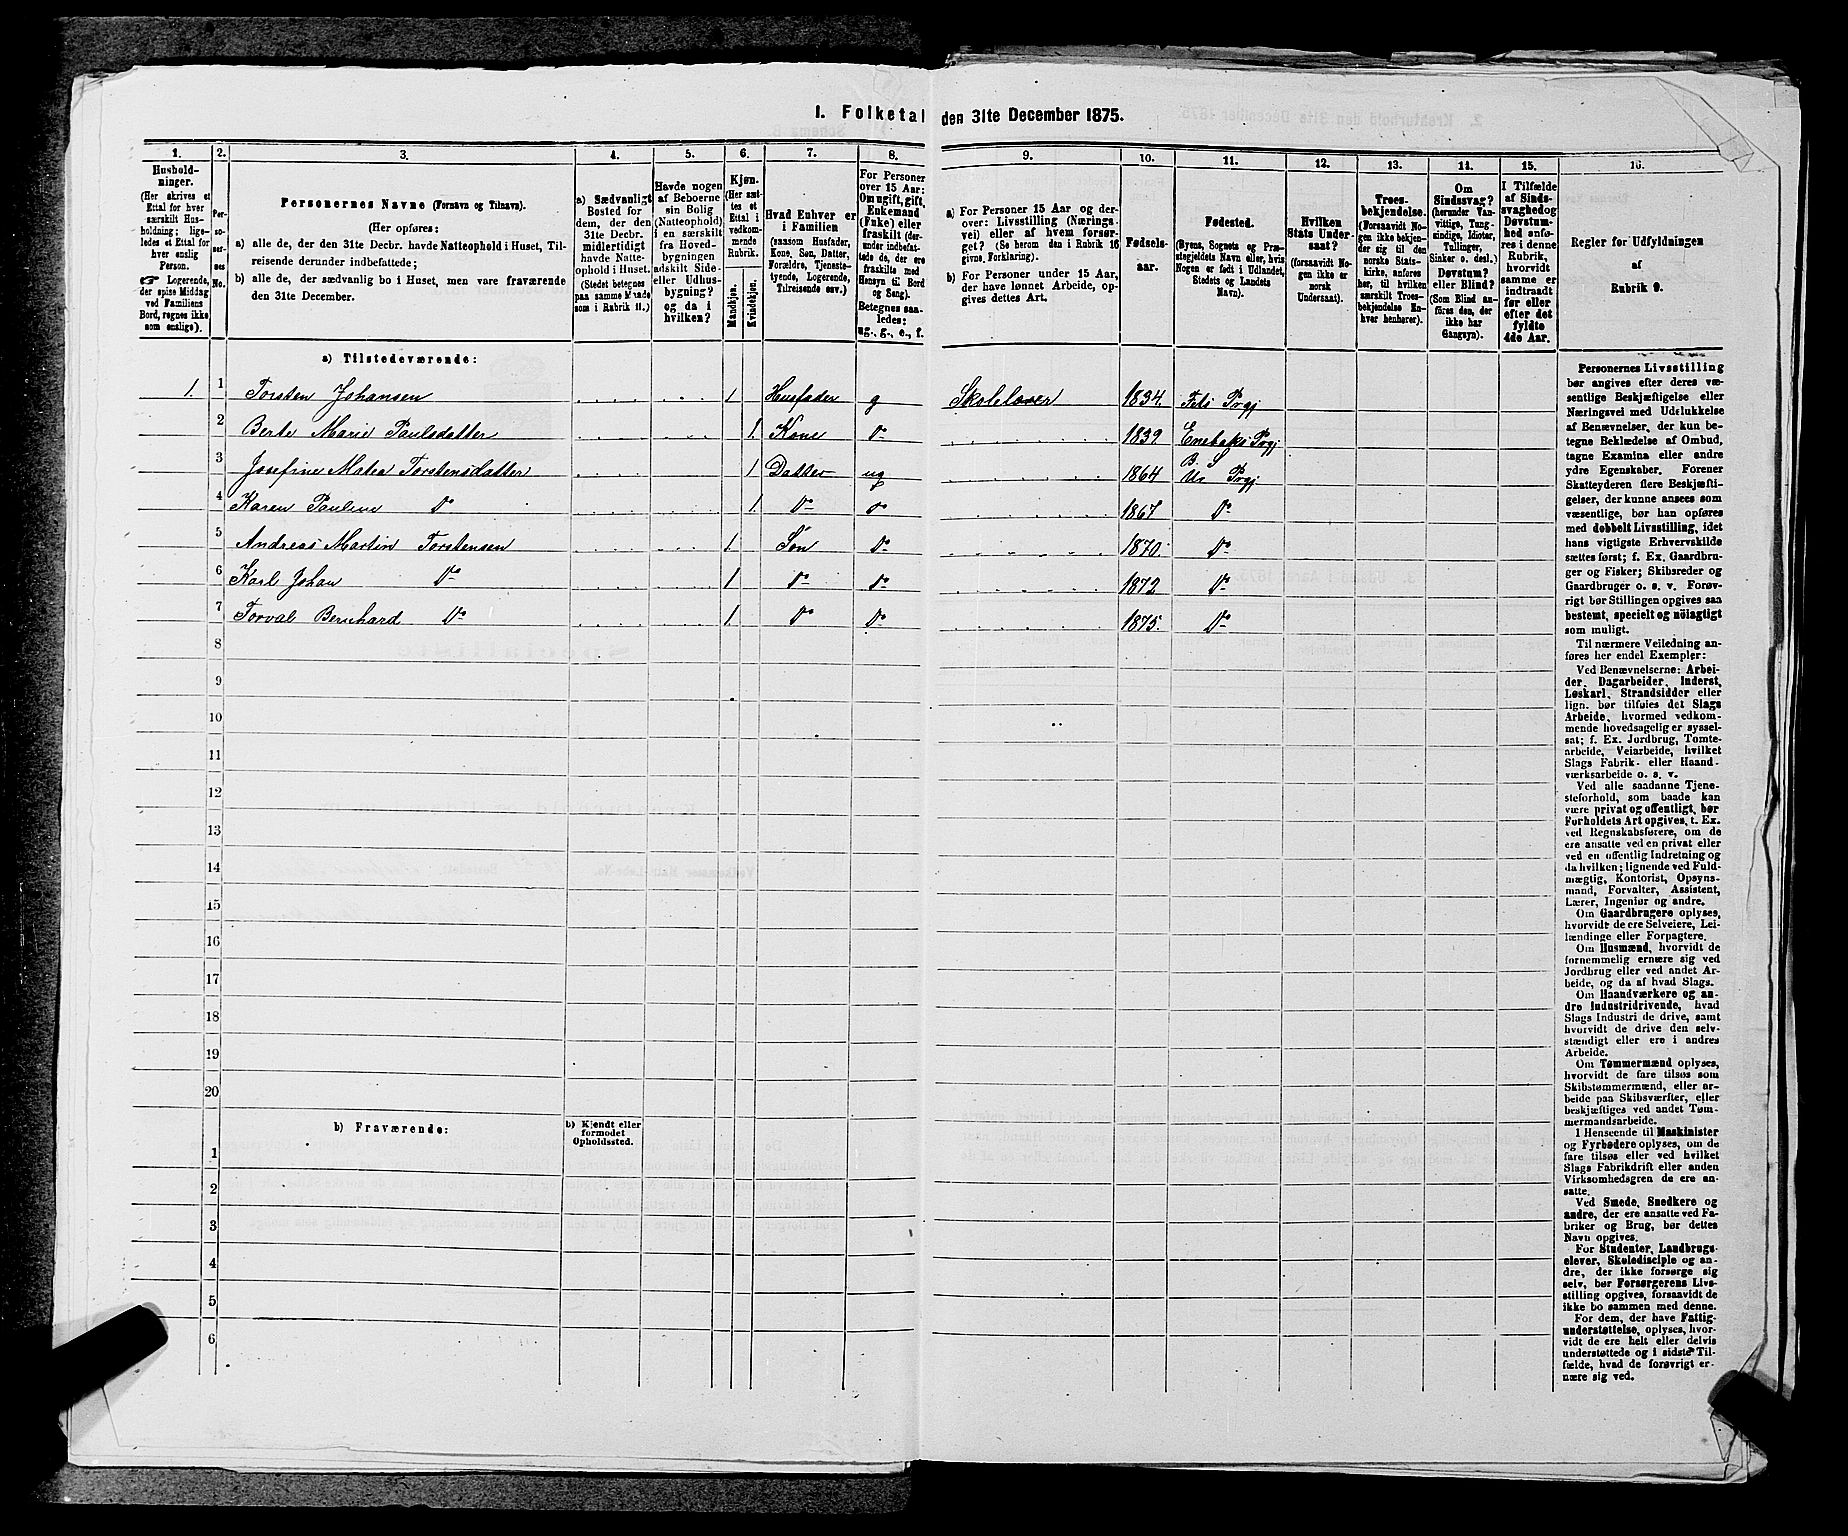 I. Folketal den 31te December 1875.
1. 2. 3. 4. 5. 6. 7. 8. 9. 10. 11. 12. 13. 14. 15. 16.
Husholdninger.
(Her skrives et
Ettal for hver
særskilt Husholdning;
ligeledes et Ettal for
hver enslig
Person.
Logerende,
der spise Middag
ved Familiens
Bord, regnes ikke
som enslige).
Personernes No.
Personernes Navne (Fornavn og Tilnavn).
(Her opføres:
a) alle de, der den 31te Decbr. havde Natteophold i Huset, Tilreisende derunder indbefattede;
b) alle de, der sædvanlig bo i Huset, men vare fraværende
den 31te December.
a) Sædvanligt
Bosted for
dem, der den
31te Decbr.
midlertidigt
havde Natteophold i Huset.
(Stedet betegnes
paa samme Maade
som i Rubrik 11.)
Havde nogen
af Beboerne
sin Bolig
(Natteophold)
i en særskilt
fra Hovedbygningen
adskilt Side-
eller Udhusbygning?
og da i
hvilken?
Kjøn.
(Her sættes et
Ettal i
vedkommende
Rubrik.
Mandkjøn.
Kvindekjøn.
Hvad Enhver er
i Familien
(saasom Husfader,
Kone, Søn, Datter,
Forældre, Tjenestetyende, Logerende,
Tilreisende osv.)
For Personer
over 15 Aar:
Om ugift, gift,
Enkemand
(Enke) eller
fraskilt (derunder indbefattede de, der ere
fraskilte med
Hensyn til Bord
og Seng).
Betegnes saaledes:
ug., g., e., f.
a) For Personer 15 Aar og derover: Livsstilling (Næringsvei) eller af hvem forsørget? (Se herom den i Rubrik 16
givne Forklaring).
b) For Personer under 15 Aar,
der have lønnet Arbeide, opgives dettes Art.
Fødselsaar.
Fødested.
(Byens, Sognets og Præstegjeldets Navn eller, hvis
Nogen er født i Udlandet,
Stedets og Landets
Navn).
Hvilken
Stats Undersaat?
(forsaavidt Nogen ikke er
norsk
Undersaat).
Troesbekjendelse.
(Forsaavidt Nogen ikke bekjender sig til den
norske Statskirke, anføres
her, til hvilken
særskilt Troesbekjendelse Enhver henhører).
Om
Sindssvag?
(herunder Vanvittige, Tungsindige, Idioter,
Tullinger,
Sinker o. desl.)
Døvstum?
eller Blind?
(Som Blind anføres den, der
ikke har
Gangsyn).
I Tilfælde
af Sindssvaghed og
Døvstumhed anføres i denne
Rubrik,
hvorvidt
samme er
indtraadt
før eller
efter det
fyldte
4de Aar.
Regler for Udfyldningen
af
Rubrik 9.
a) Tilstedeværende:
1. 1 Torsten Johansen 1 Husfader g Skolelærer 1834. Fets Prgj
2 Berte Marie Paulsdatter 1. Kone Do 1839 Enebaks Prgj
3 Josefine Matea Torstensdatter 1 Datter ug 1864 B. S Ur Prgj
4 Karen Pauline Do 1. Do Do 1867 Do
5 Andreas Martin Torstensen 1. Søn Do 1870 Do
6 Karl Johan Do 1. Do Do 1872 Do
7 Torval Bernhard Do 1. Do Do 1875. Do
8
9
10
11
12
13
14
15
16
17
18
19
20
b) Fraværende: b) Kjendt eller
formodet
Opholdssted.
1
2
3
4
5
6
Personernes Livsstilling
bør angives efter deres væsentlige Beskjæftigelse eller
Næringsvei med Udelukkelse
af Benævnelser, der kun betegne Beklædelse af Ombud,
tagne Examina eller andre
ydre Egenskaber. Forener
Skatteyderen flere Beskjæftigelser, der kunne ansees som
væsentlige, bør han opføres
med dobbelt Livsstilling, idet
hans vigtigste Erhvervskilde
sættes først; f. Ex. Gaardbruger og Fisker; Skibsreder og
Gaardbruger o. s. v. Forøvrigt bør Stillingen opgives saa
bestemt, specielt og nöiagtigt
som muligt.
Til nærmere Veiledning anføres her endel Exempler:
Ved Benævnelserne: Arbeider, Dagarbeider, Inderst,
Løskarl, Strandsidder eller
lign. bør tilføies det Slags
Arbeide, hvormed vedkommende hovedsagelig er sysselsat; f. Ex. Jordbrug, Tomtearbeide, Veiarbeide, hvilket
Slags Fabrik- eller Haandværksarbeide o. s. v.
Ved alle saadanne Tjenesteforhold, som baade kan
være privat og offentligt, bør
Forholdets Art opgives, t. Ex.
ved Regnskabsførere, om de
ere ansatte ved en privat eller
ved en offentlig Indretning og
da hvilken; lignende ved Fuldmægtig, Kontorist, Opsynsmand, Forvalter, Assistent,
Lærer, Ingeniør og andre.
Om Gaardbrugere oplyses,
hvorvidt de ere Selveiere, Leilændinge eller Forpagtere.
Om Husmænd, hvorvidt de
fornemmelig ernære sig ved
Jordbrug eller ved andet Arbeide, og da af hvad Slags.
Om Haandværkere og andre Industridrivende, hvad
Slags Industri de drive, samt
hvorvidt de drive den selvstændigt eller ere i andres
Arbeide.
Om Tømmermænd oplyses,
hvorvidt de fare tilsøs som
Skibstømmermænd, eller arbeide paa Skibsværfter, eller
beskjæftiges ved andet Tømmermandsarbeide.
I Henseende til Maskinister
og Fyrbødere oplyses, om de
fare tilsøs eller ved hvilket
Slags Fabrikdrift eller anden
Virksomhedsgren de ere ansatte.
Ved Smede, Snedkere og
andre, der ere ansatte ved Fabriker og Brug, bør dettes
Navn opgives.
For Studenter, Landbrugselever, Skoledisciple og andre, der ikke forsørge sig
selv, bør Forsørgerens Livsstilling opgives, forsaavidt de
ikke bo sammen med denne.
For dem, der have Fattigunderstøttelse, oplyses, hvorvidt de ere helt eller delvis
understøttede og i sidste Tilfælde, hvad de forøvrigt ernære sig ved.